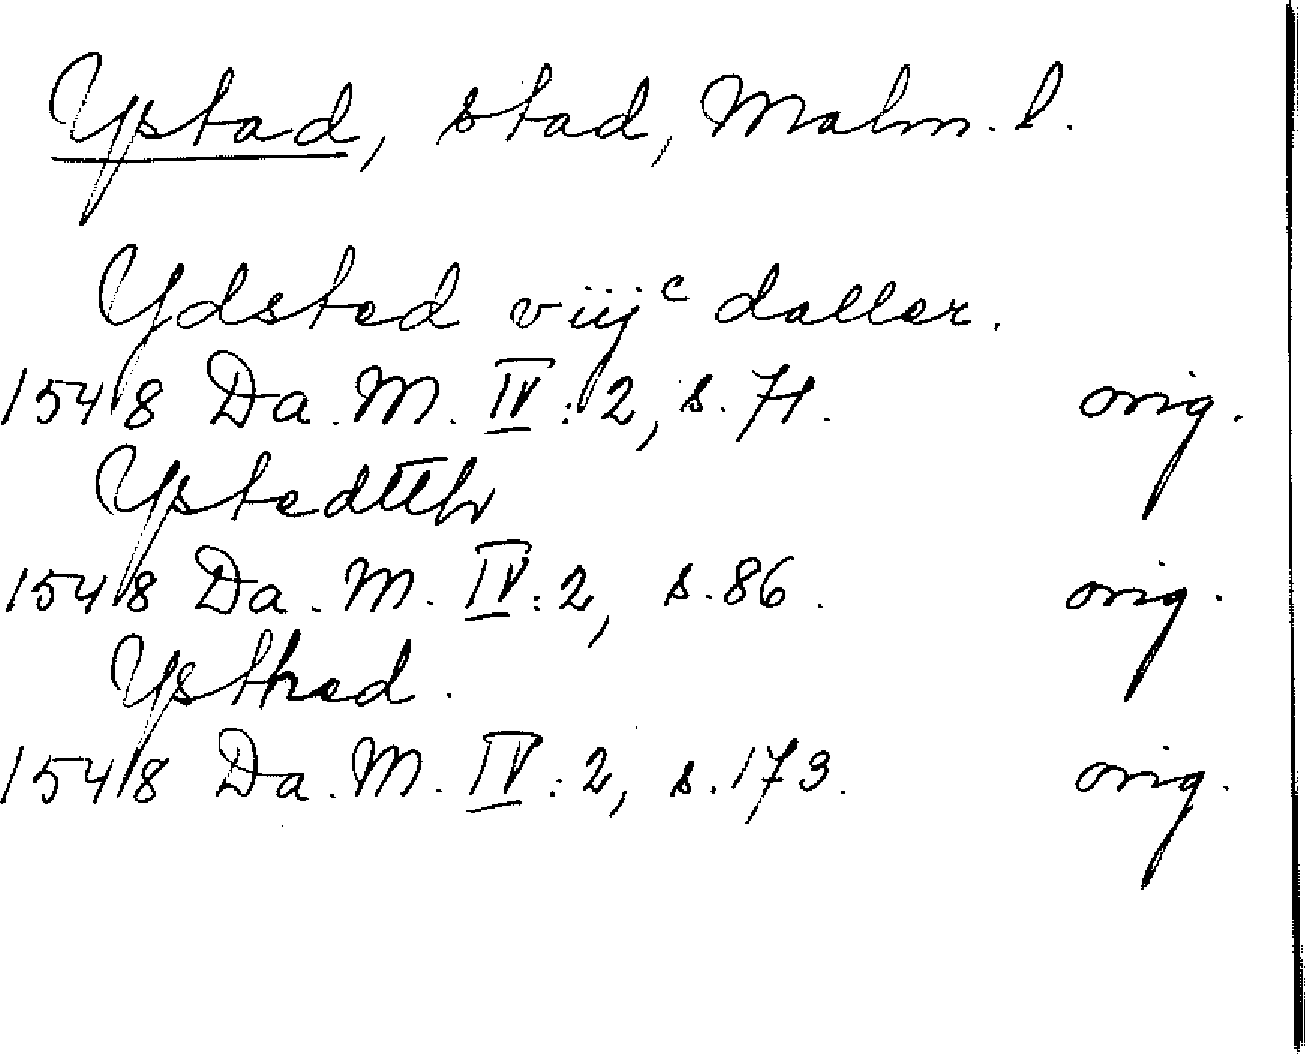 Ystad, stad, Malm. l.
Ydsted viijᶜ daller.
1548 Da. M. IV:2, s. 71. orig.
1548 Da. M. IV:2, s. 86. orig.
Ysthed.
1548 Da. M. IV:2, s. 173. orig.